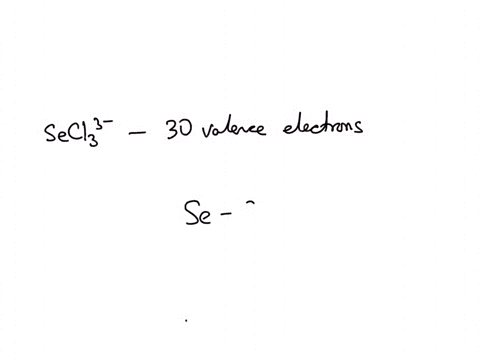 SeCl₃³⁻ – 30 valence electrons
Se –